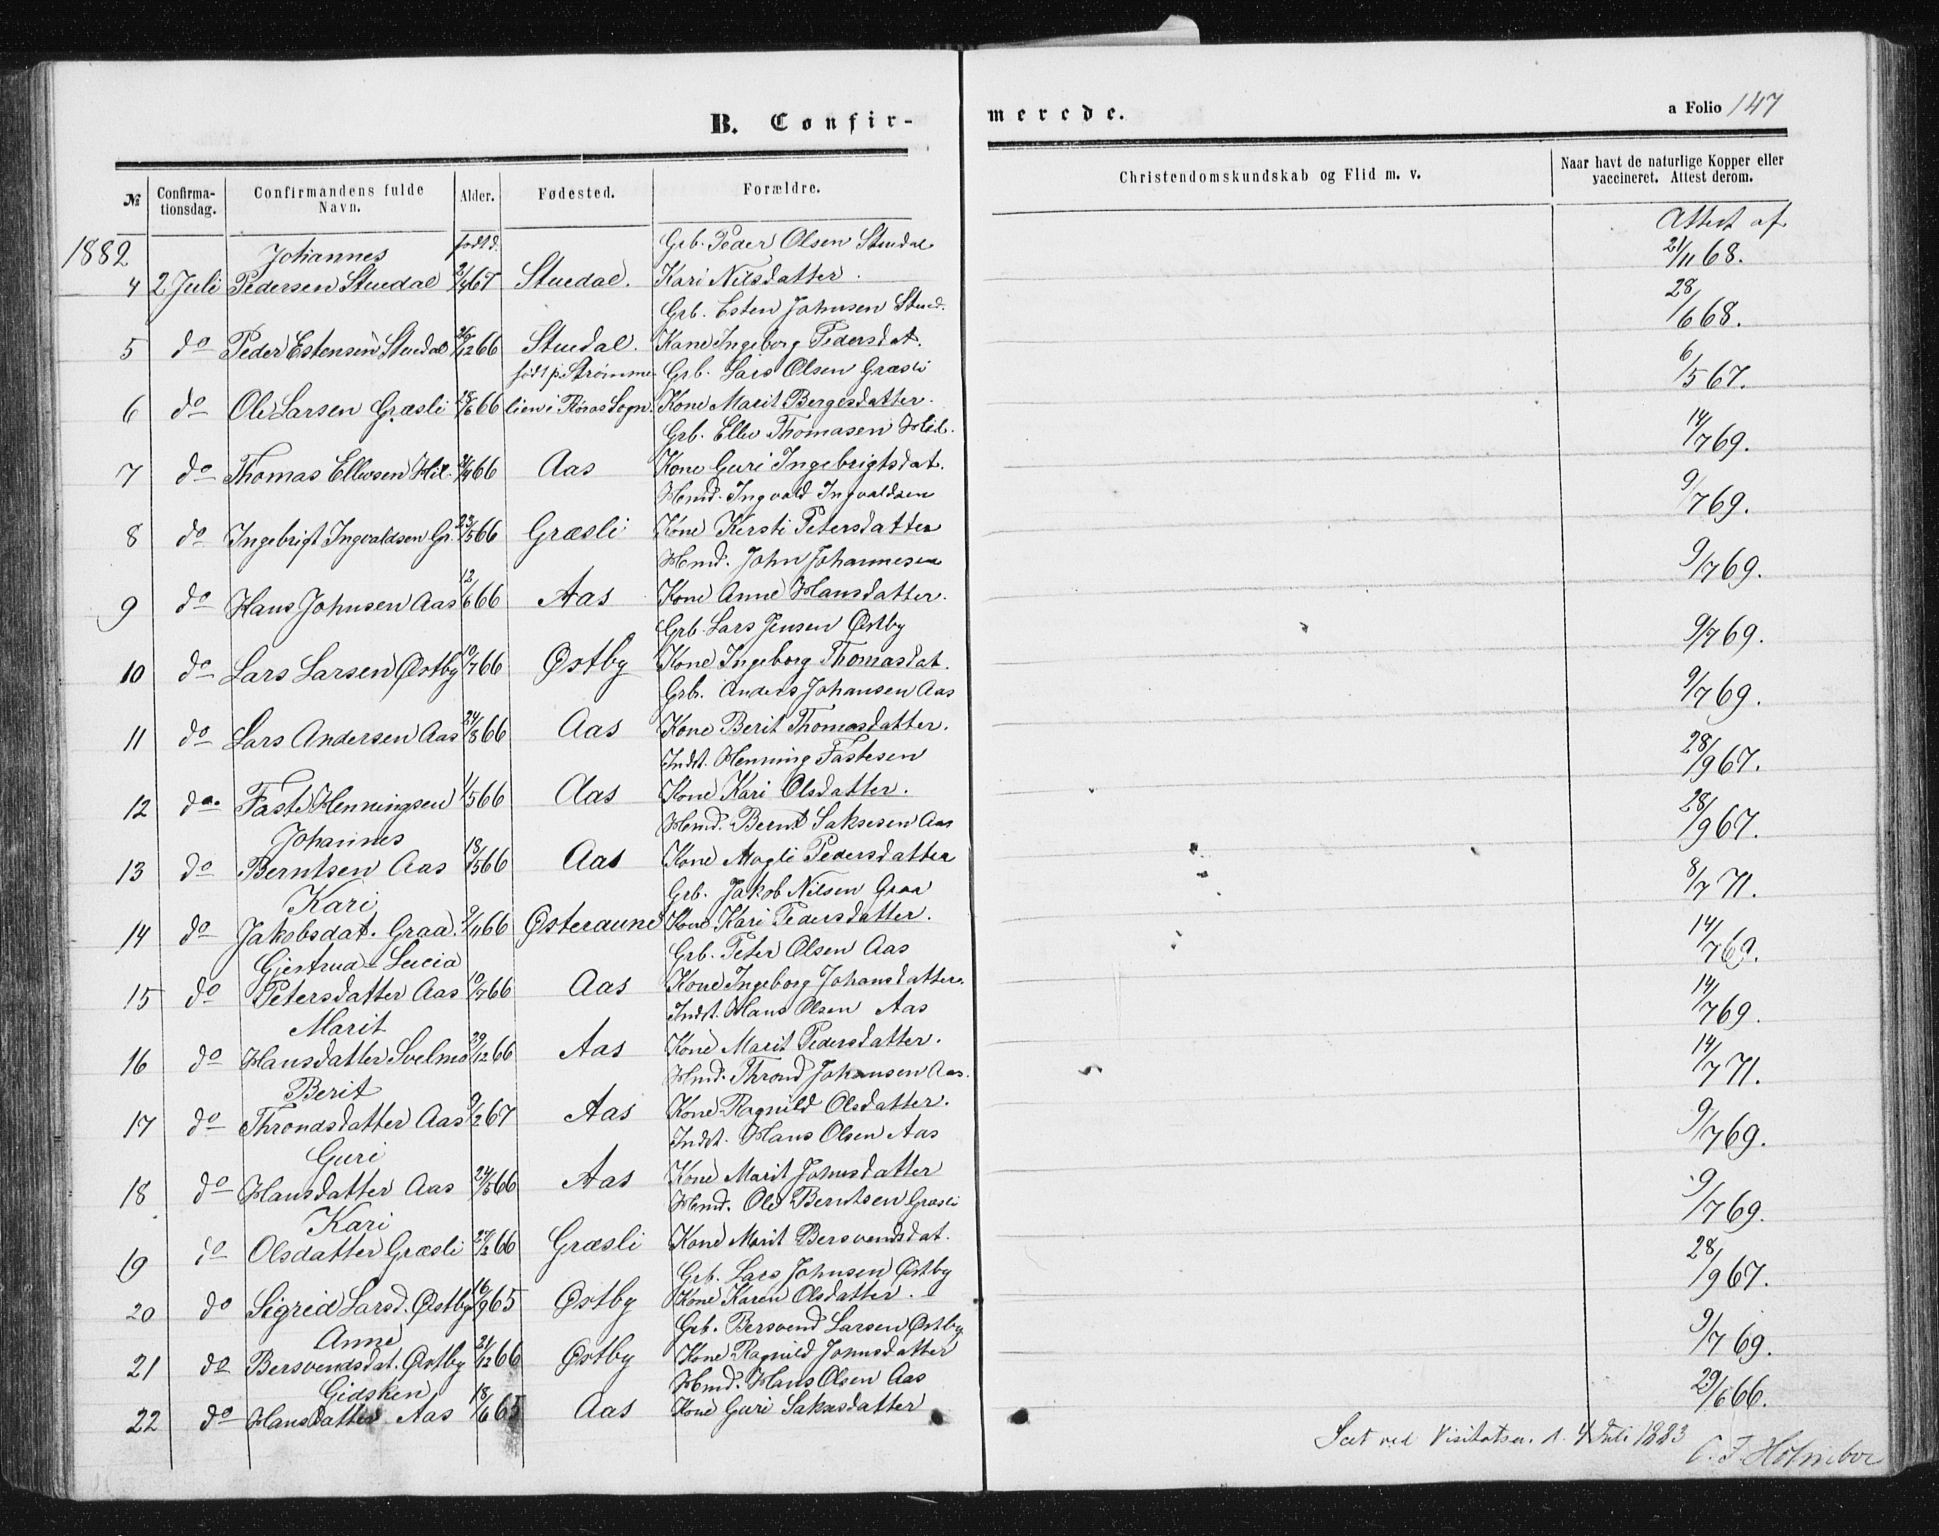 B. Confirmerede.
a Folio 147
№ Confirma-tionsdag. Confirmandens fulde Navn. Alder. Fødested. Forældre. Christendomskundskab og Flid m. v. Naar havt de naturlige Kopper eller vaccineret. Attest derom.
1882 Johannes født d. Grb. Peder Olsen Stuedal Attest af
4 2 Juli Pedersen Stuedal 2/4 67 Stuedal. Kari Nilsdatter. 21/11 68.
Grb. Esten Johnsen Stued.
5 do Peder Estensen Stuedal 26/12 66 Stuedal. Kone Ingeborg Pedersdat. 28/6 68.
født p. Strømme- Grb. Lars Olsen Græsli
6 do Ole Larsen Græsli 28/6 66 lien i Røros Sogn. Kone Marit Bergesdatter. 6/5 67.
Grb. Ellev Thomasen Hil.
7 do Thomas Ellevsen Hil. 2/4 66 Aas Kone Guri Ingebrigtsdat. 14/7 69.
Hmd. Ingvald Ingvaldsen
8 do Ingebrigt Ingvaldsen Gr. 23/5 66 Græsli Kone Kirsti Petersdatter 9/7 69.
Hmd. John Johannesen
9 do Hans Johnsen Aas 12/6 66 Aas Kone Anne Hansdatter. 9/7 69.
Grb. Lars Jensen Østby
10 do Lars Larsen Østby 10/7 66 Østby Kone Ingeborg Thomasdat. 9/7 69.
Grb. Anders Johansen Aas
11 do Lars Andersen Aas 24/8 66 Aas Kone Berit Thomasdatter. 9/7 69.
Indst. Henning Fastesen
12 do. Faste Henningsen 1/5 66 Aas Kone Kari Olsdatter. 28/9 67.
Johannes Hmd. Bernt Saksesen Aas
13 do Berntsen Aas 18/5 66 Aas Kone Magli Pedersdatter 28/9 67.
Kari Grb. Jakob Nilsen Graa
14 do Jakobsdat. Graa. 9/11 66 Østeraune Kone Kari Pedersdatter. 8/7 71.
Gjertrud-Lucia Grb. Peter Olsen Aas
15 do Petersdatter Aas 10/7 66 Aas Kone Ingeborg Johansdatter. 14/7 69.
Marit Indst. Hans Olsen Aas
16 do Hansdatter Svelmo 29/12 66 Aas Kone Marit Pedersdatter. 14/7 69.
Berit Hmd. Thrond Johansen Aas.
17 do Throndsdatter Aas 9/2 67 Aas Kone Ragnild Olsdatter. 14/7 71.
Guri Indst. Hans Olsen Aas
18 do Hansdatter Aas 24/5 66 Aas Kone Marit Johnsdatter 9/7 69.
Kari Hmd. Ole Berntsen Græsli
19 do Olsdatter Græsli 27/2 66 Græsli Kone Marit Bersvendsdat. 9/7 69.
Grb. Lars Johnsen Østby
20 do Sigrid Larsd. Østby 16/9 65 Østby Kone Karen Olsdatter. 28/9 67.
Anne Grb. Bersvend Larsen Østby
21 do Bersvendsdat. Østby 21/12 66 Østby Kone Ragnild Jonusdatter 9/7 69.
Gidsken Hmd. Hans Olsen Aas
22 do Hansdatter Aas 18/6 65 Aas Kone Guri Saksesdatter 29/6 66.
Seet ved Visitatsen d. 4 Juli 1883
C. F. Holmboe